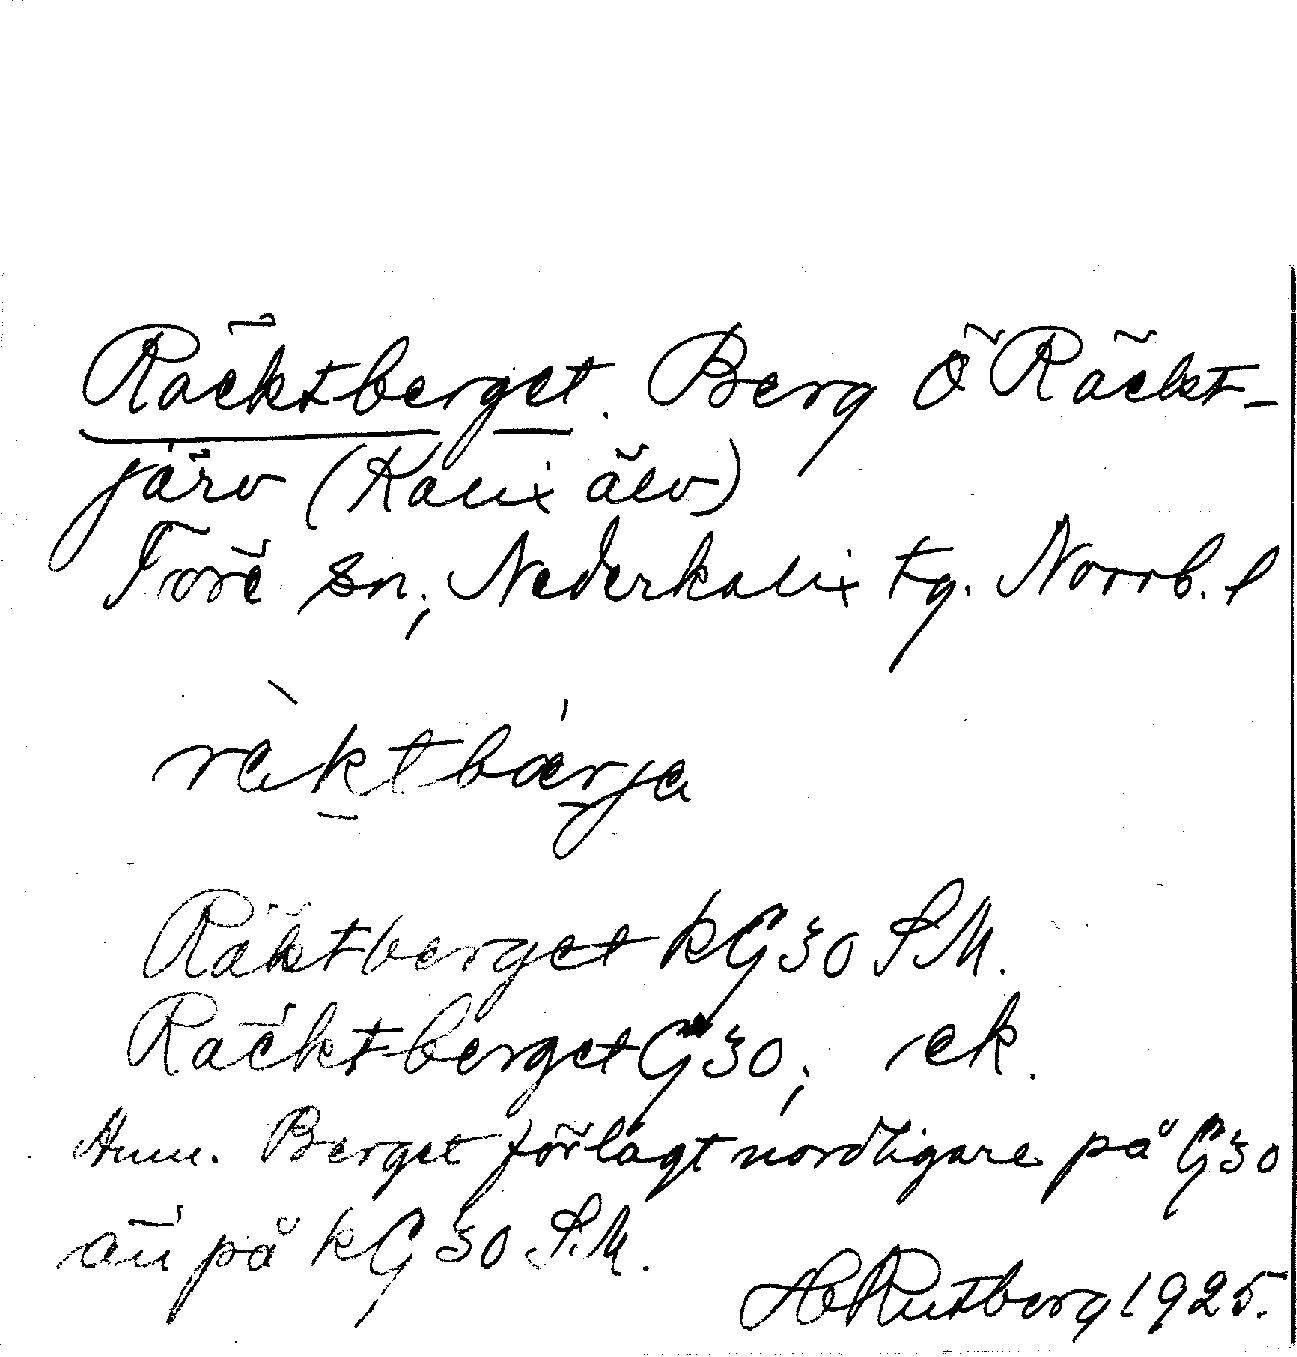 Räcktberget. Berg Ö Räckt-
järv (Kalix älv)
Töre sn; Nederkalix tg. Norrb. l
rèktbærja
Räktberget kG30 S.M.
Räcktberget G30; ek.
Anm. Berget förlagt nordligare på G30
än på kG30 S.M.
H Rutberg 1925.